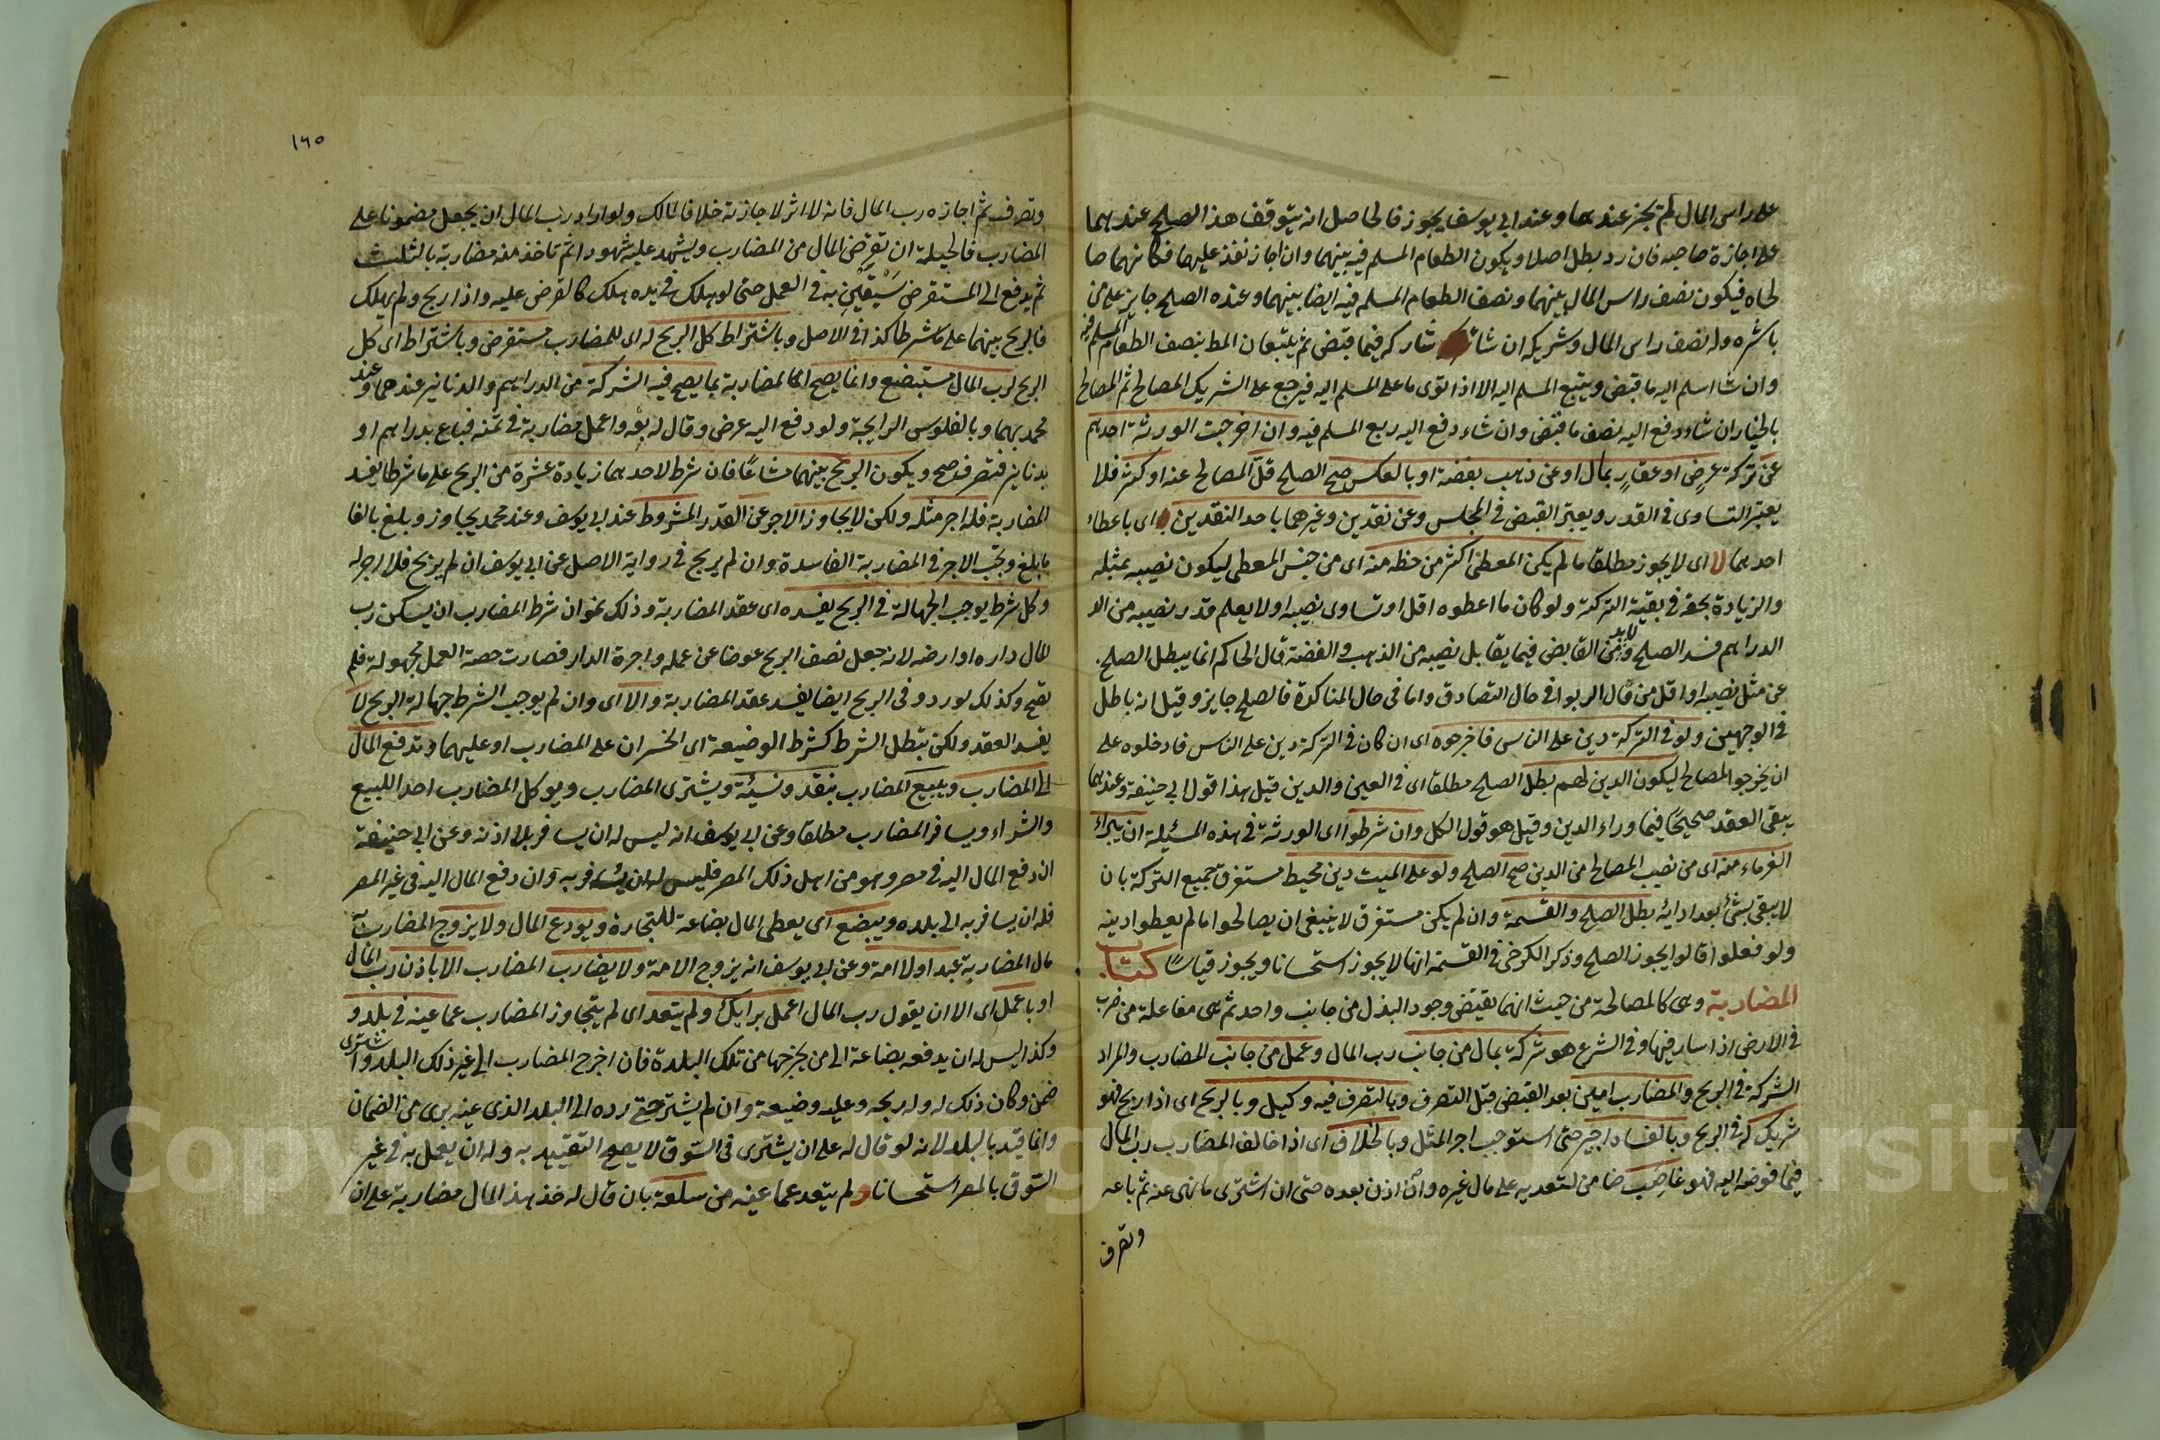 على راس المال لم يجز عندهما وعند ابي يوسف يجوز فالحاصل انه يتوقف هذا الصلح عندهما
على اجازة صاحبه فان رد بطل اصلا ويكون الطعام المسلم فيه بينهما وان اجاز نفذ عليهما فكانهما صا
لحاه فيكون نصف راس المال بينهما ونصف الطعام المسلم فيه ايضا بينهما وعنده الصلح جايز على من
باشره وله نصف راس المال وشريكه ان شا شاركه فيما قبض ثم يتبعان المط بنصف الطعام المسلم فيه
وان شا سلم اليه ما قبض ويتبع المسلم اليه الا اذا توى ما على المسلم اليه فيرجع على الشريك المصالح ثم المصالح
بالخيار ان شاء دفع اليه نصف ما قبض وان شاء دفع اليه ربع المسلم فيه وان اخرجت الورثة احدهم
عن تركة عرض او عقار بمال او عن ذهب بفضة او بالعكس صح الصلح قل المصالح عنه او كثر فلا
يعتبر التساوى في القدر ويعتبر القبض في المجلس وعن نقدين وغيرهما باحد النقدين اى باعطاء
احدهما لا اى لا يجوز مطلقا ما لم يكن المعطى اكثر من حظه منه اى من جنس المعطى ليكون نصيبه بمثله
والزيادة بحقه في بقية التركة ولو كان ما اعطوه اقل او تساوى نصيبه او لا يعلم قدر نصيبه من الد
الدراهم فسد الصلح ولابد من القابض فيما يقابل نصيبه من الذهب والفضة قال الحاكم انما يبطل الصلح
عن مثل نصيبه او اقل من مال الربوا في حال التصادق واما في حال المناكرة فالصلح جايز وقيل انه باطل
في الوجهين ولو في التركة دين على الناس فاخرجوه اى ان كان في التركة دين على الناس فادخلوه على
ان يخرجوا المصالح ليكون الدين لهم بطل الصلح مطلقا اى في العين والدين قيل هذا قول ابي حنيفة وعندهما
يبقى العقد صحيحا فيما وراء الدين وقيل هو قول الكل وان شرطوا اى الورثة في هذه المسئلة ان يبراء
الغرماء منه اى من نصيب المصالح من الدين صح الصلح ولو على الميت دين محيط مستغرق جميع التركة بان
لا يبقى بشئ بعد ادائه بطل الصلح والقسمة وان لم يكن مستغرق لا ينبغي ان يصالحوا ما لم يعطوا دينه
ولو فعلوا قالوا يجوز الصلح وذكر الكرخى في القسمة انها لا يجوز استحسانا ويجوز قياسا كتاب
المضاربة وهى كالمصالحة من حيث انهما يقتضى وجود البذل من جانب واحد ثم هى مفاعلة من ضرب
في الارض اذا سار فيها وفي الشرع هو شركة بمال من جانب رب المال وعمل من جانب المضارب والمراد
الشركة في الربح والمضارب امين بعد القبض قبل التصرف وبالتصرف فيه وكيل وبالربح اى اذا ربح فهو
شريك له في الربح وبالفساد اجير حتى استوجب اجر المثل وبالخلاف اى اذا خالف المضارب رب المال
فيما فوضه اليه فهو غاصب ضامن لتعديه على مال غيره وان اذن بعده حتى ان اشترى ما نهى عنه ثم باعه
وتصرف
١٦٥
وتصرف ثم اجازه رب المال فانه لا اثر لاجازته خلافا لمالك ولو اراد رب المال ان يجعل مضمونا على
المضارب فالحيلة ان تقرض المال من المضارب ويشهد عليه شهودا ثم تاخذ منه مضاربة بالثلث
ثم يدفع الى المستقرض يستعين به في العمل حتى لو هلك في يده هلك كالقرض عليه واذا ربح ولم يهلك
فالربح بينهما على ما شرطا كذا في الاصل وباشتراط كل الربح له اى للمضارب مستقرض وباشتراط اى كل
الربح لرب المال مستبضع وانما يصح المضاربة بما يصح فيه الشركة من الدراهم والدنانير عندهما وعند
محمد بهما وبالفلوس الرايجة ولو دفع اليه عرض وقال له بعه واعمل مضاربة في ثمنه فباع بدراهم او
بدنانير فتصرف صح ويكون الربح بينهما مشاعا فان شرط لاحدهما زيادة عشرة من الربح على ما شرطا يفسد
المضاربة فله اجر مثله ولكن لا يجاوز الاجر عن القدر المشروط عند ابي يوسف وعند محمد يجاوز وبلغ بالغا
ما بلغ ويجب الاجر في المضاربة الفاسدة وان لم يربح في رواية الاصل عن ابي يوسف ان لم يربح فلا اجر له
وكل شرط يوجب الجهالة في الربح يفسده اى عقد المضاربة وذلك نحو ان شرط المضارب ان يسكن رب
المال داره او ارضه لانه جعل نصف الربح عوضا عن عمله واجرة الدار فصارت حصة العمل مجهولة فلم
تصح وكذلك لو ردد في الربح ايضا يفسد عقد المضاربة والا اى وان لم يوجب الشرط جهالة الربح لا
يفسد العقد ولكن يبطل الشرط كشرط الوضيعة اى الخسران على المضارب او عليهما وتدفع المال
الى المضارب ويبيع المضارب بنقد ونسيئة ويشترى المضارب ويوكل المضارب احدا للبيع
والشراء ويسافر المضارب مطلقا وعن ابي يوسف انه ليس له ان يسافر بلا اذنه وعن ابي حنيفة
ان دفع المال اليه في مصر وهو من اهل ذلك المصر فليس له ان يسافر به وان دفع المال اليه في غير المصر
فله ان يسافر به الى بلده ويبضع اى يعطى المال بضاعة للتجارة ويودع المال ولا يزوج المضارب
مال المضاربة عبدا ولا امة وعن ابي يوسف انه يزوج الامة ولا يضارب المضارب الا باذن رب المال
او باعمل اى الا ان يقول رب المال اعمل برايك ولم يتعد اى لم يتجاوز المضارب عما عينه في بلد و
وكذا ليس له ان يدفعه بضاعة الى من يخرجها من تلك البلدة فان اخرج المضارب الى غير ذلك البلد واشترى
ضمن وكان ذلك له وله ربحه وعليه وضيعة وان لم يشتر حتى رده الى البلد الذى عينه برى من الضمان
وانما قيد بالبلد لانه لو قال له على ان يشترى في السوق لا يصح التقييد به وله ان يعمل به في غير
السوق بالمصر استحسانا ولم يتعد عما عينه من سلعة بان قال له خذ هذا المال مضاربة على ان
Copyright University